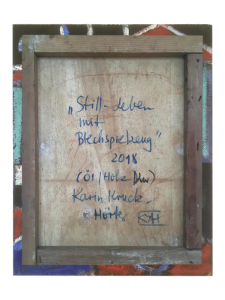 „Still-Leben
mit
Blechspielzeug"
2018
(Öl/Holz
Karin Kruck-